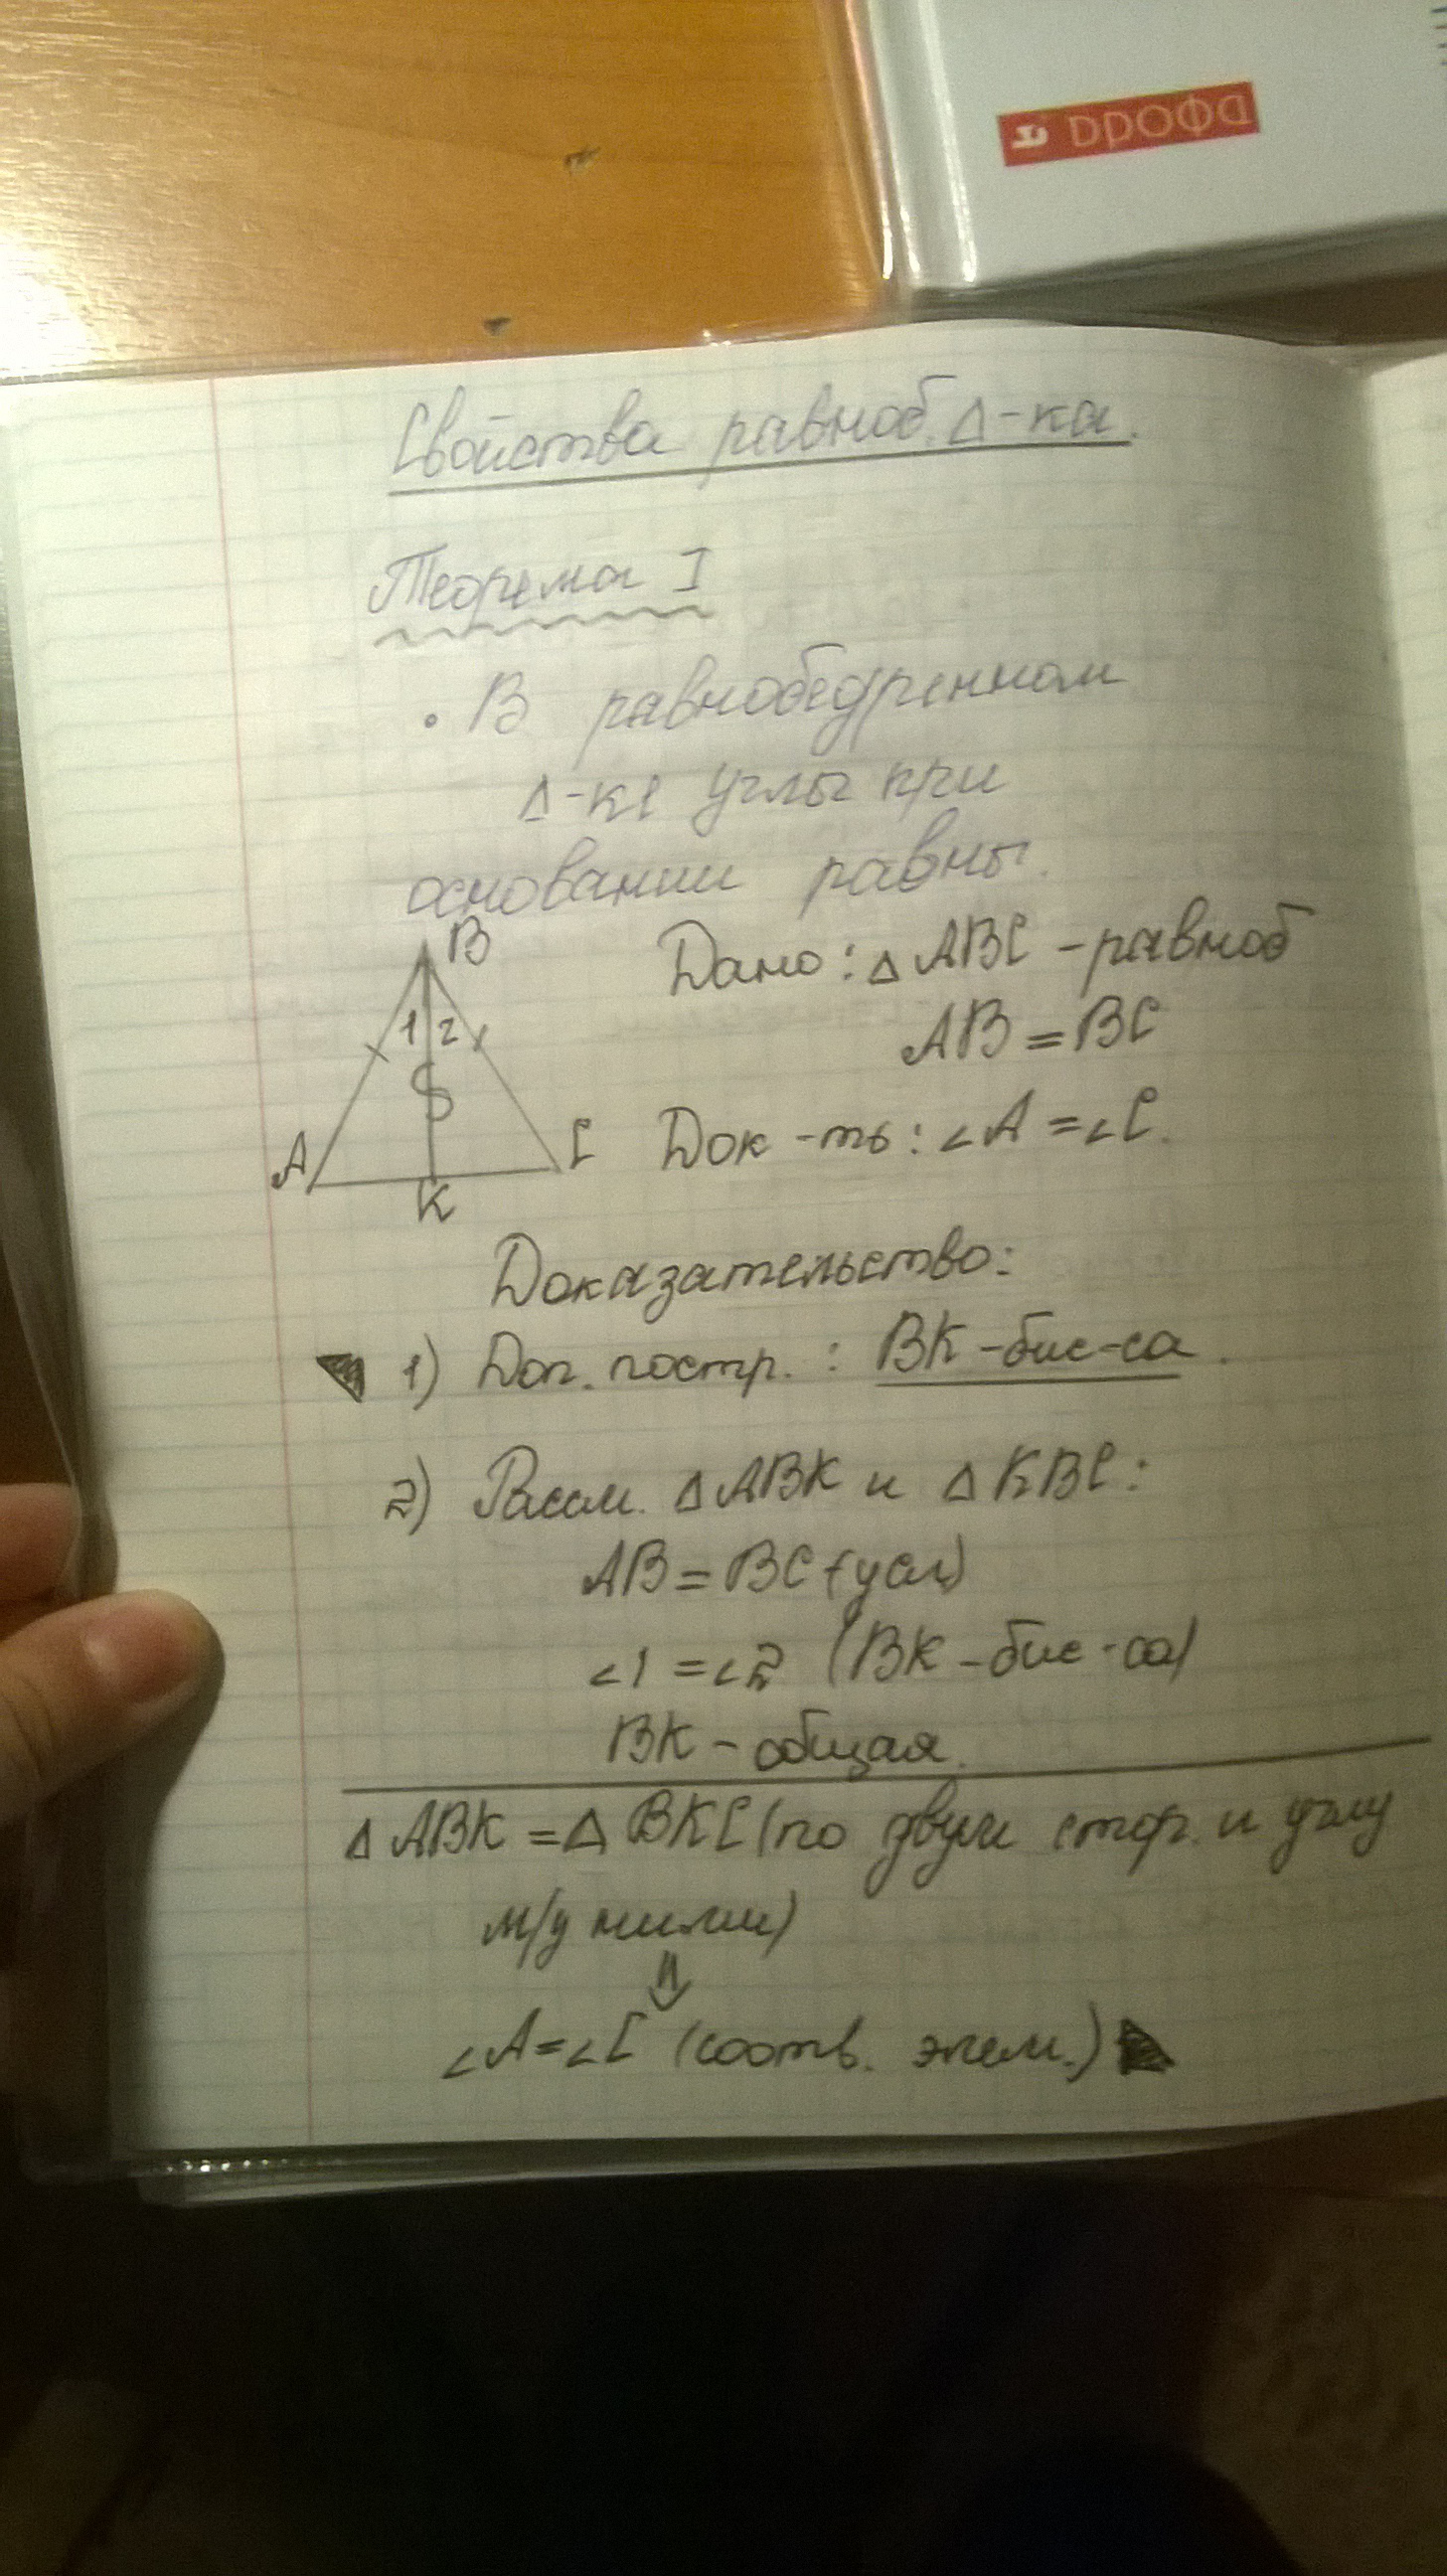 ДРОФА
Свойства равноб. Δ-ка.
Теорема I
• В равнобедренном
Δ-ке углы при
основании равны.
B
1 2
A
C
K
Дано: Δ ABC - равноб
AB = BC
Док-ть: ∠A = ∠C.
Доказательство:
1) Доп. постр. : BK - бис-са.
2) Рассм. Δ ABK и Δ KBC:
AB = BC (усл)
∠1 = ∠2 (BK - бис-са)
BK - общая.
Δ ABK = Δ BKC (по двум стор. и углу
м/у ними)
⇓
∠A = ∠C (соотв. элем.)